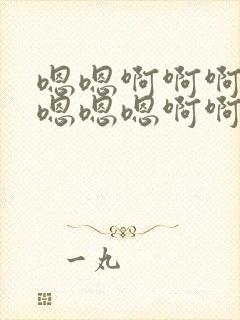 嗯嗯啊啊啊
嗯嗯嗯啊啊
一丸